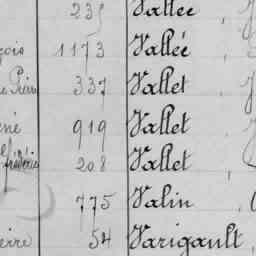 235 Vallée
çois 1173 Vallée
e Pierre 337 Vallet
ené 919 Vallet
Frédéric 208 Vallet
775 Valin
ierre 54 Varigault